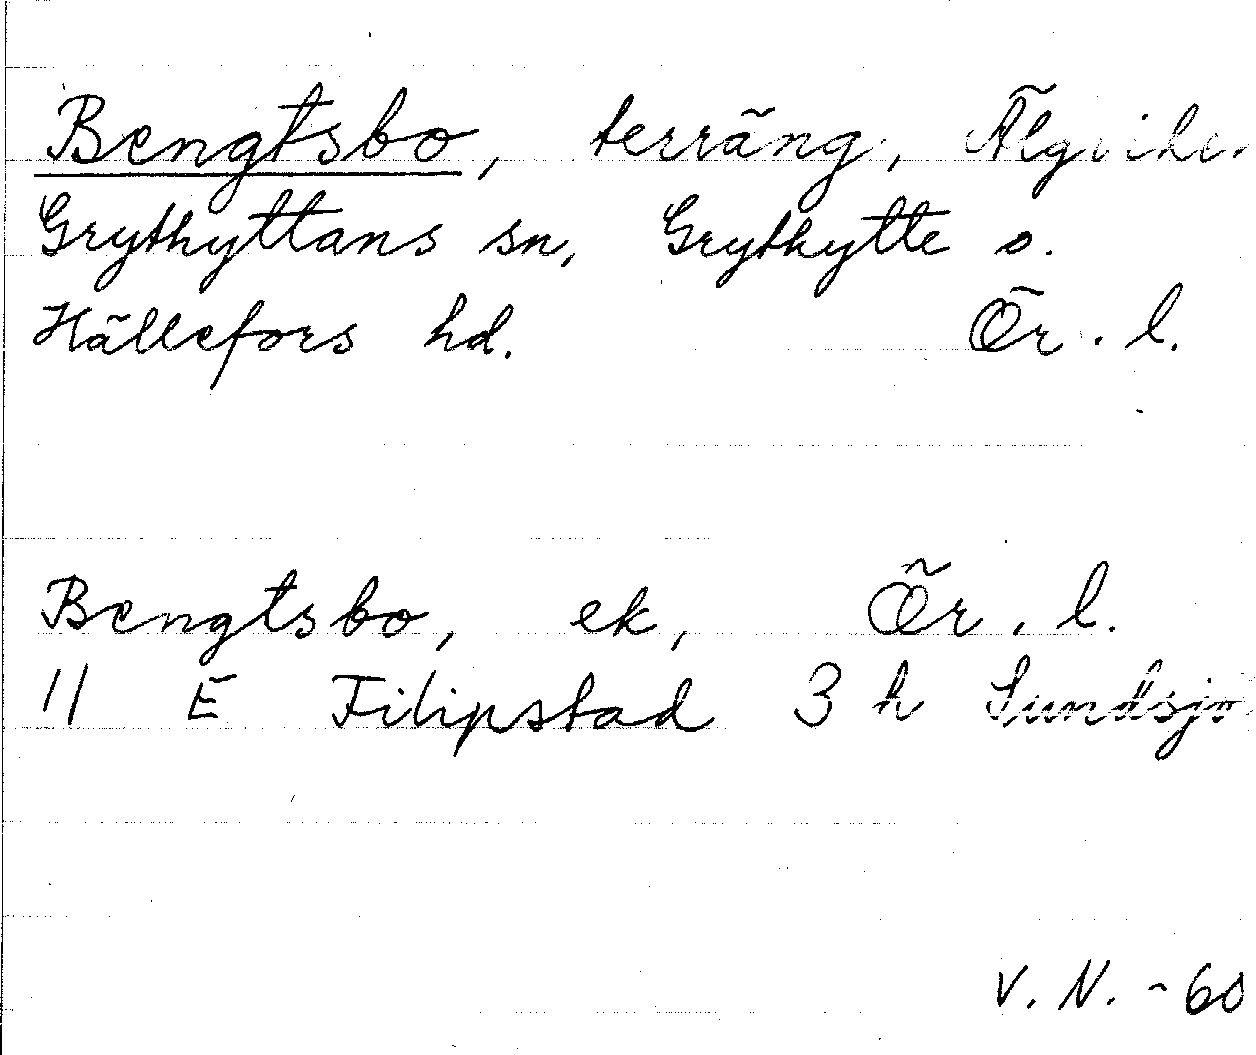 Bengtsbo, terräng,
Grythyttans sn, Grythytte o.
Hällefors hd. Ör. l.
Bengtsbo, ek, Ör. l.
11 E Filipstad 3 h Sundsjö
V. N. -60